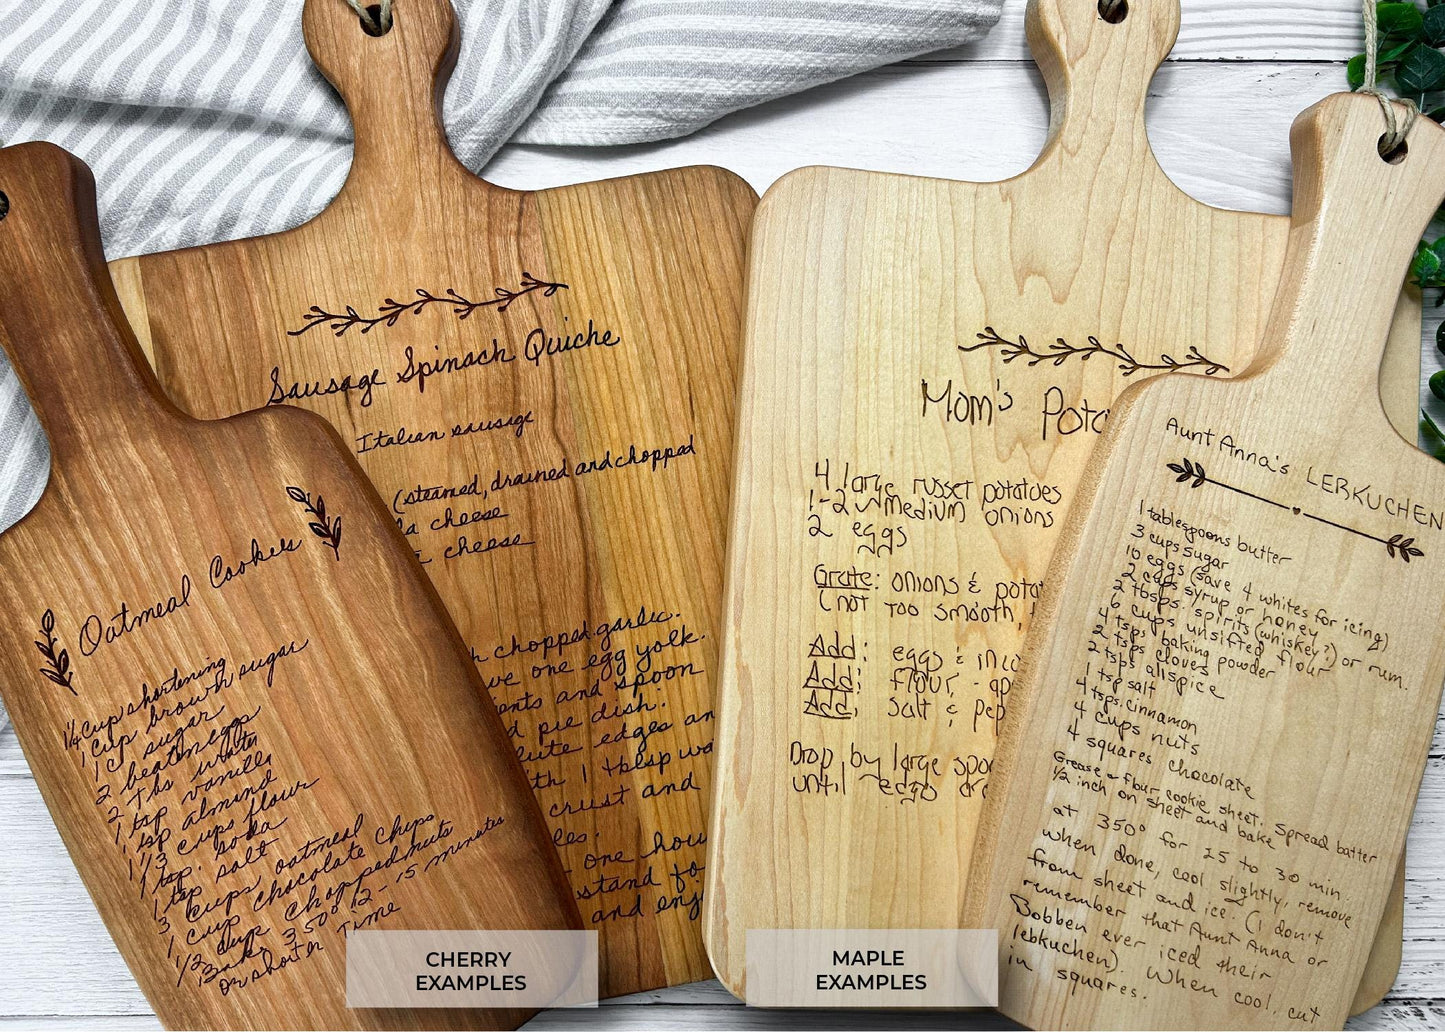 Oatmeal Cookies
1/4 cup shortening
1 cup brown sugar
1 cup sugar
2 beaten eggs
2 tbs water
1 tsp vanilla
1 tsp almond
1 1/3 cups flour
1 tsp. soda
1 tsp salt
3 cups oatmeal
1 cup chocolate chips
1/2 cup chopped nuts
Bake 350° 12-15 minutes
or shorter time
Sausage Spinach Quiche
Italian sausage
(steamed, drained and chopped
cheese
cheese
chopped garlic.
one egg yolk.
and spoon
pie dish.
edges
1 tblsp
crust and
one
and
Mom's
4 large russet potatoes
1-2 medium onions
2 eggs
Grate: onions &
(not too smooth,
Add: eggs &
Add: flour -
Add: salt &
Drop by large
until eggs
Aunt Anna's LEBKUCHEN
1 tablespoons butter
3 cups sugar
10 eggs (save 4 whites for icing)
2 cups syrup or honey
2 tbsps. spirits (whiskey?) or rum.
6 cups unsifted flour
4 tsps baking powder
2 tsps cloves
2 tsps allspice
1 tsp salt
4 tsps. cinnamon
4 cups nuts
4 squares chocolate
Grease & flour cookie sheet. Spread batter
1/2 inch on sheet and bake
at 350° for 25 to 30 min.
When done, cool slightly, remove
from sheet and ice. (I don't
remember that Aunt Anna or
Bobben ever iced their
lebkuchen). When cool, cut
in squares.
CHERRY
EXAMPLES
MAPLE
EXAMPLES